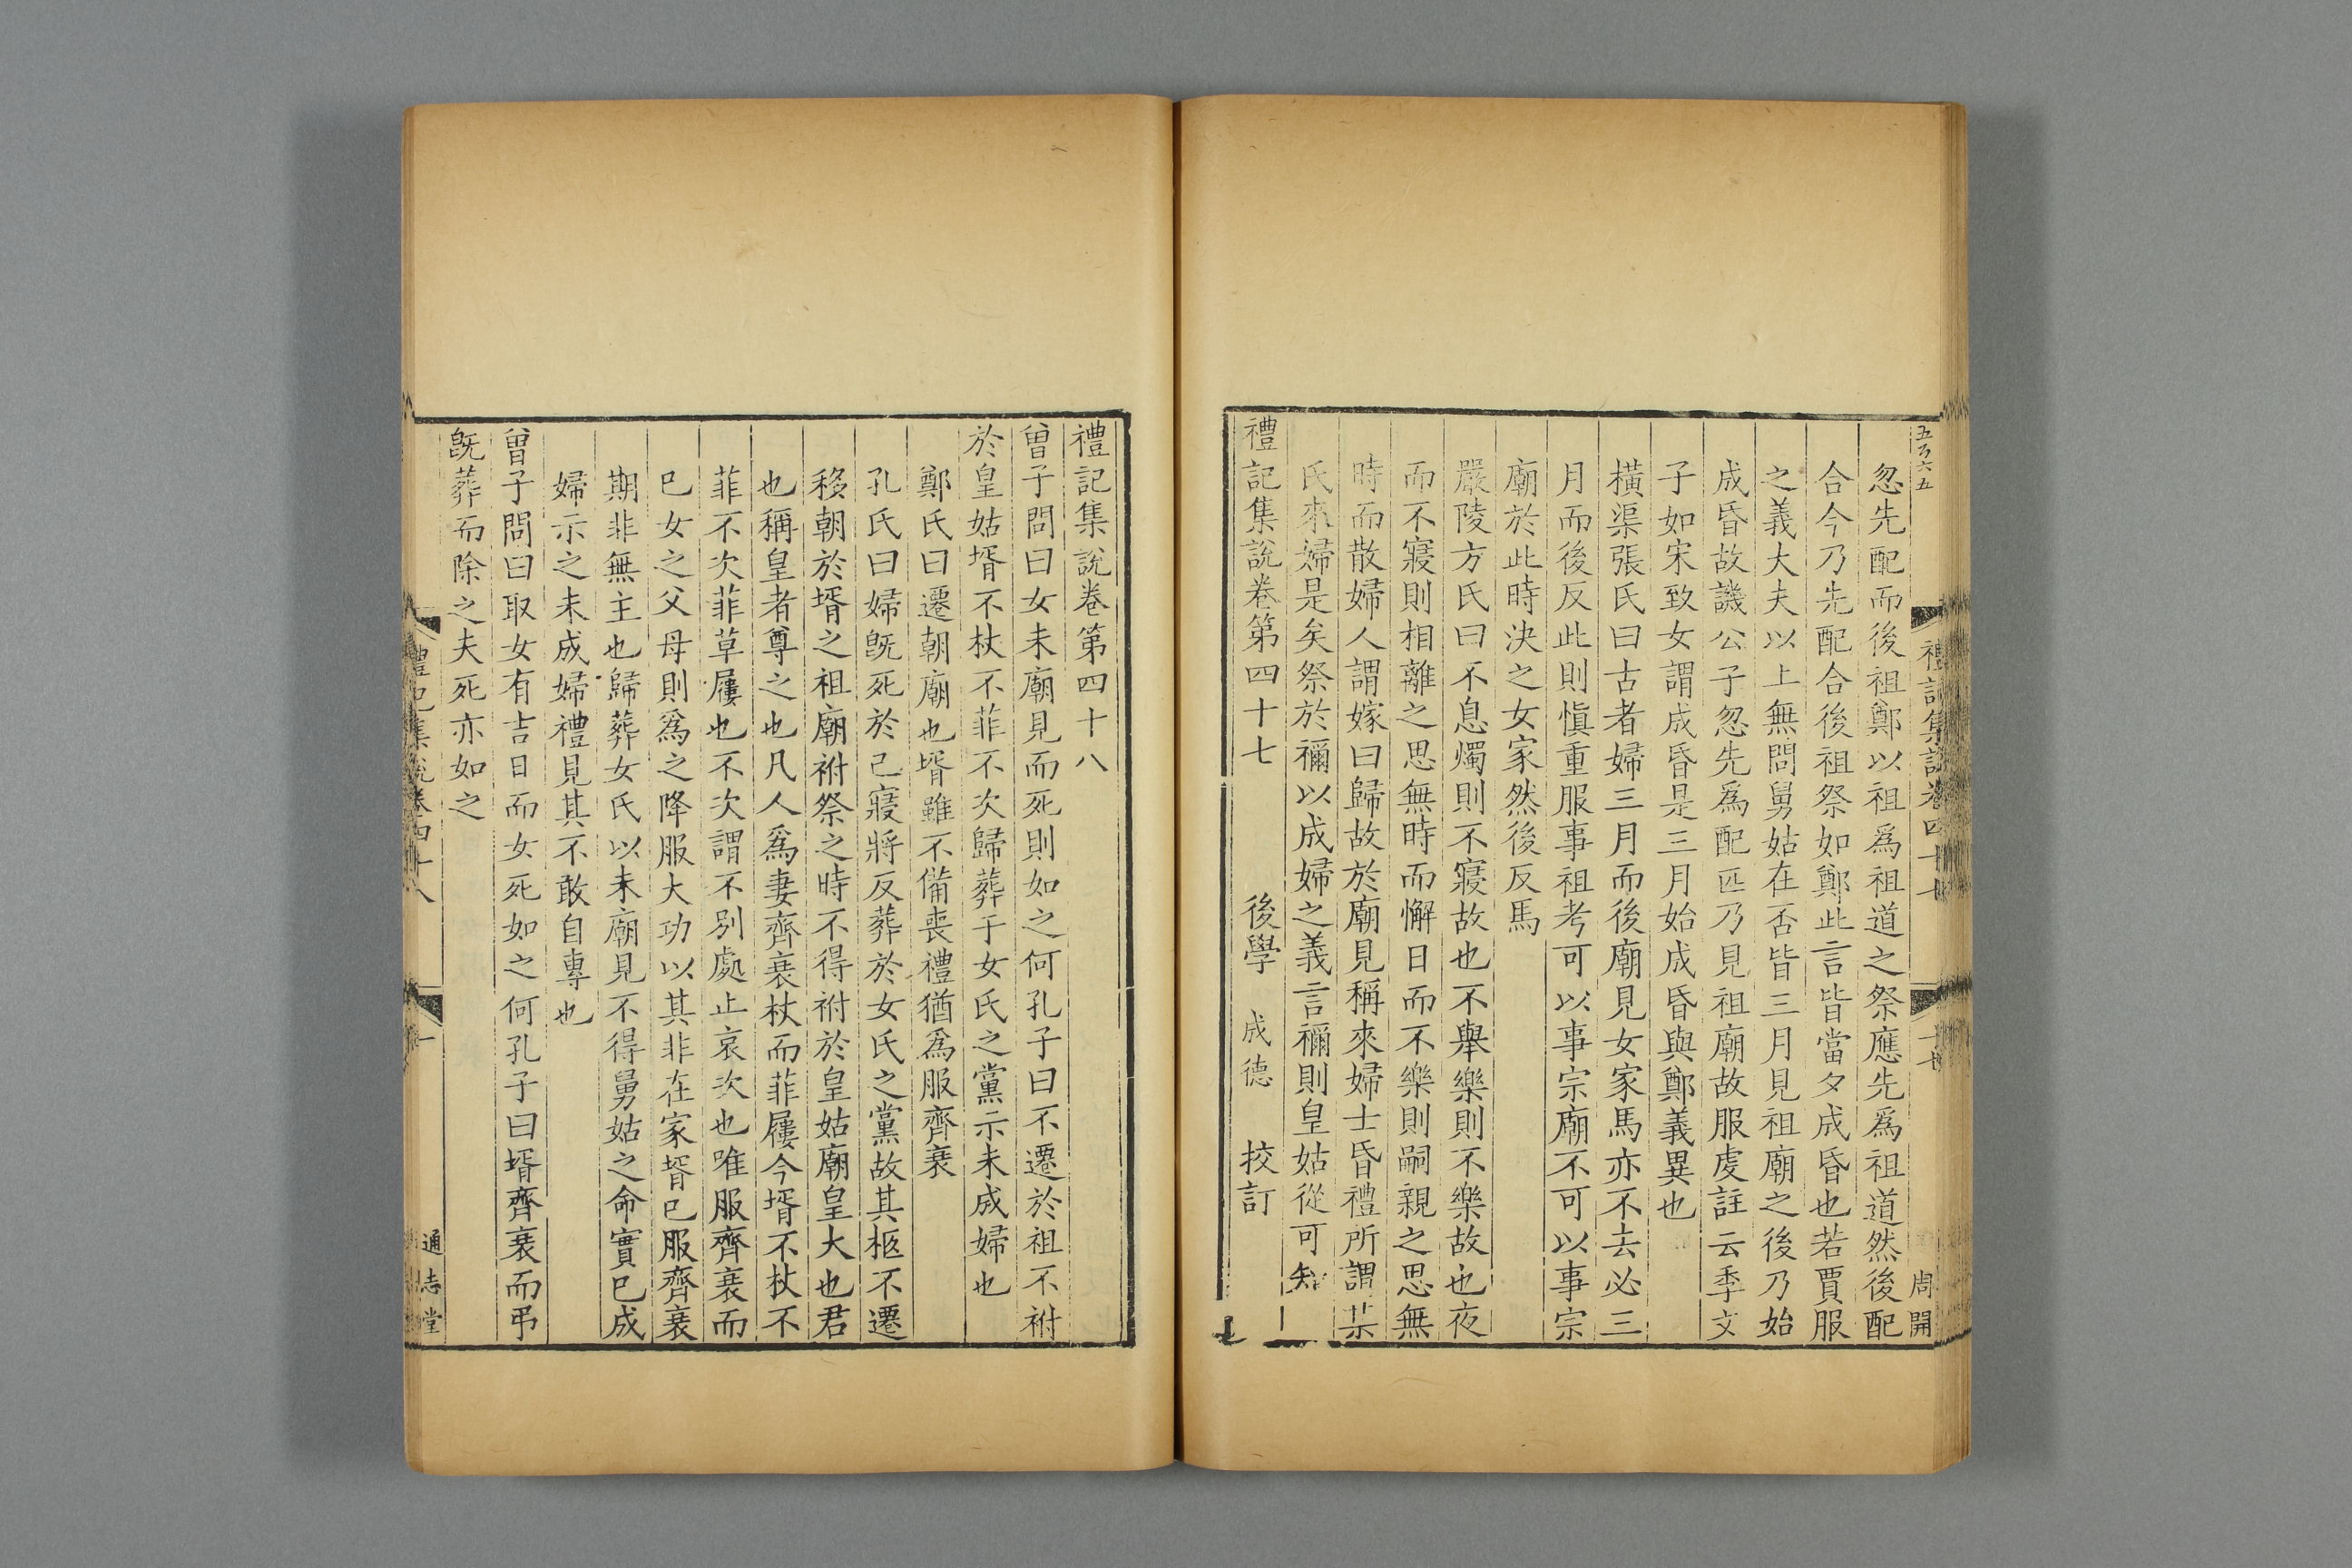 忽先配而後祖鄭以祖爲祖道之祭應先爲祖道然後配
合今乃先配合後祖祭如鄭此言皆當夕成昏也若賈服
之義大夫以上無問舅姑在否皆三月見祖廟之後乃始
成昏故譏公子忽先爲配匹乃見祖廟故服虔註云季文
子如宋致女謂成昏是三月始成昏與鄭義異也
橫渠張氏曰古者婦三月而後廟見女家馬亦不去必三
月而後反此則愼重服事祖考可以事宗廟不可以事宗
廟於此時決之女家然後反馬
嚴陵方氏曰不息燭則不寢故也不舉樂則不樂故也夜
而不寢則相離之思無時而懈日而不樂則嗣親之思無
時而散婦人謂嫁曰歸故於廟見稱來婦士昏禮所謂某
氏來婦是矣祭於禰以成婦之義言禰則皇姑從可知
禮記集說卷第四十七
後學 成德 校訂
禮記集說卷四十七
周開
禮記集說卷第四十八
曾子問曰女未廟見而死則如之何孔子曰不遷於祖不祔
於皇姑壻不杖不菲不次歸葬于女氏之黨示未成婦也
鄭氏曰遷朝廟也壻雖不備喪禮猶爲服齊衰
孔氏曰婦旣死於己寢將反葬於女氏之黨故其柩不遷
移朝於壻之祖廟祔祭之時不得祔於皇姑廟皇大也君
也稱皇者尊之也凡人爲妻齊衰杖而菲屨今壻不杖不
菲不次菲草屨也不次謂不別處止哀次也唯服齊衰而
已女之父母則爲之降服大功以其非在家壻已服齊衰
期非無主也歸葬女氏以未廟見不得舅姑之命實已成
婦示之未成婦禮見其不敢自專也
曾子問曰取女有吉日而女死如之何孔子曰壻齊衰而弔
旣葬而除之夫死亦如之
禮記集說卷四十八
一
通志堂